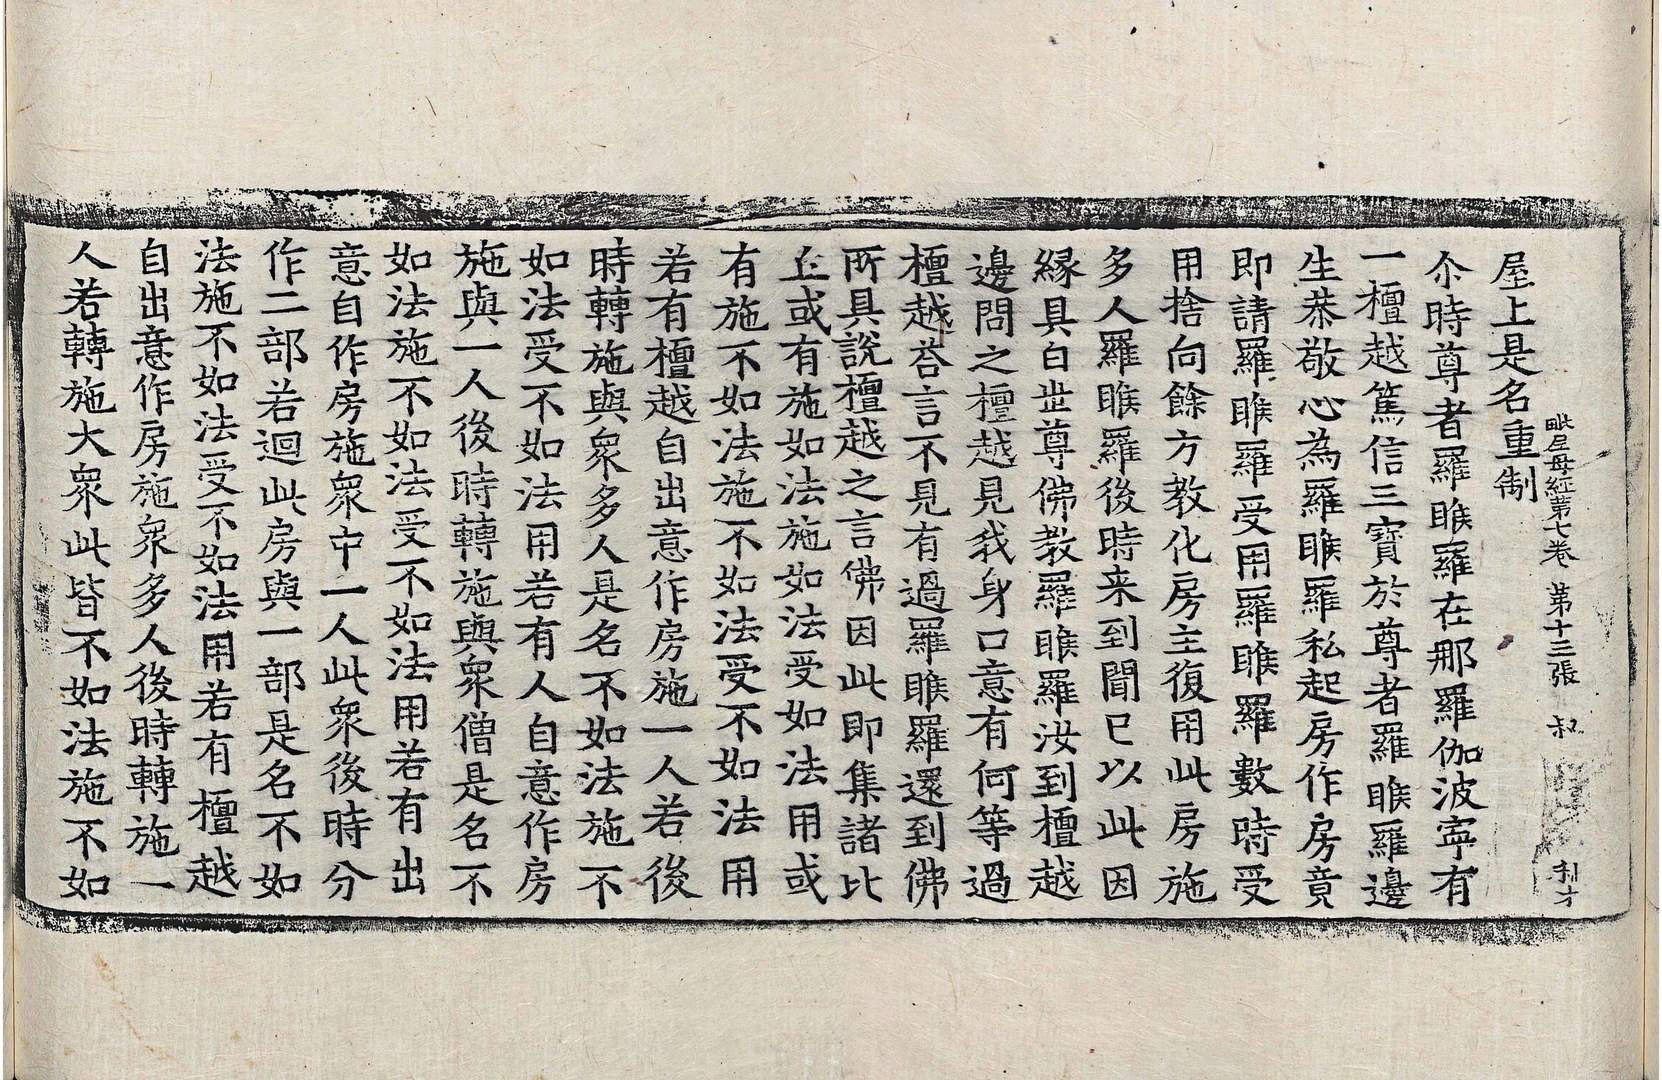 毗尼母経第七卷 第十三張 叔
屋上是名重制
尒時尊者羅睺羅在那羅伽波寧有
一檀越篤信三寶於尊者羅睺羅邊
生恭敬心為羅睺羅私起房作房竟
即請羅睺羅受用羅睺羅數時受
用捨向餘方教化房主復用此房施
多人羅睺羅後時来到聞已以此因
縁具白世尊佛教羅睺羅汝到檀越
邊問之檀越見我身口意有何等過
檀越荅言不見有過羅睺羅還到佛
所具說檀越之言佛因此即集諸比
丘或有施如法施如法受如法用或
有施不如法施不如法受不如法用
若有檀越自出意作房施一人若後
時轉施與衆多人是名不如法施不
如法受不如法用若有人自意作房
施與一人後時轉施與衆僧是名不
如法施不如法受不如法用若有出
意自作房施衆中一人此衆後時分
作二部若迴此房與一部是名不如
法施不如法受不如法用若有檀越
自出意作房施衆多人後時轉施一
人若轉施大衆此皆不如法施不如